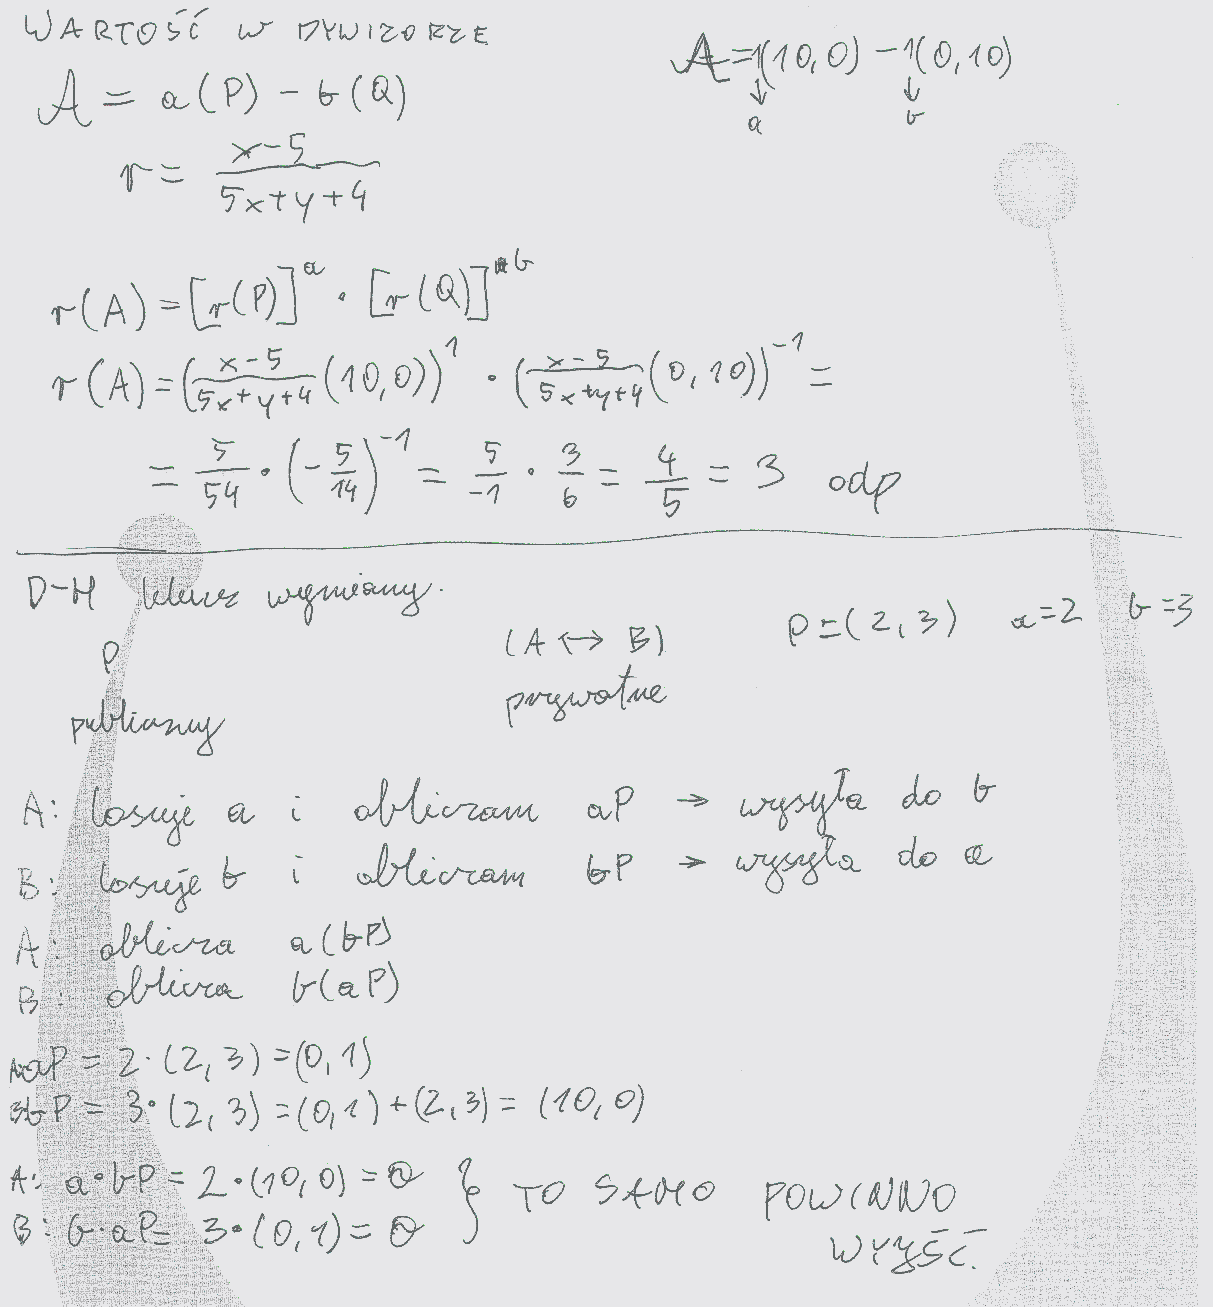 WARTOŚĆ W DYWIZORZE
A = a(P) - b(Q)
A = 1(10,0) - 1(0,10)
↓ ↓
a b
r = (x-5)/(5x+y+4)
r(A) = [r(P)]^a · [r(Q)]^b
r(A) = ((x-5)/(5x+y+4) (10,0))^1 · ((x-5)/(5x+y+4) (0,10))^-1 =
= 5/54 · (-5/14)^-1 = 5/-1 · 3/6 = 4/5 = 3 odp
D-H klucz wymiany.
P (A ↔ B) P=(2,3) a=2 b=3
publiczny prywatne
A: losuje a i obliczam aP → wysyła do b
B: losuje b i obliczam bP → wysyła do a
A: oblicza a(bP)
B: oblicza b(aP)
A: aP = 2·(2,3) = (0,1)
B: bP = 3·(2,3) = (0,1)+(2,3) = (10,0)
A: a·bP = 2·(10,0) = O
B: b·aP = 3·(0,1) = O
} TO SAMO POWINNO
WYJŚĆ.